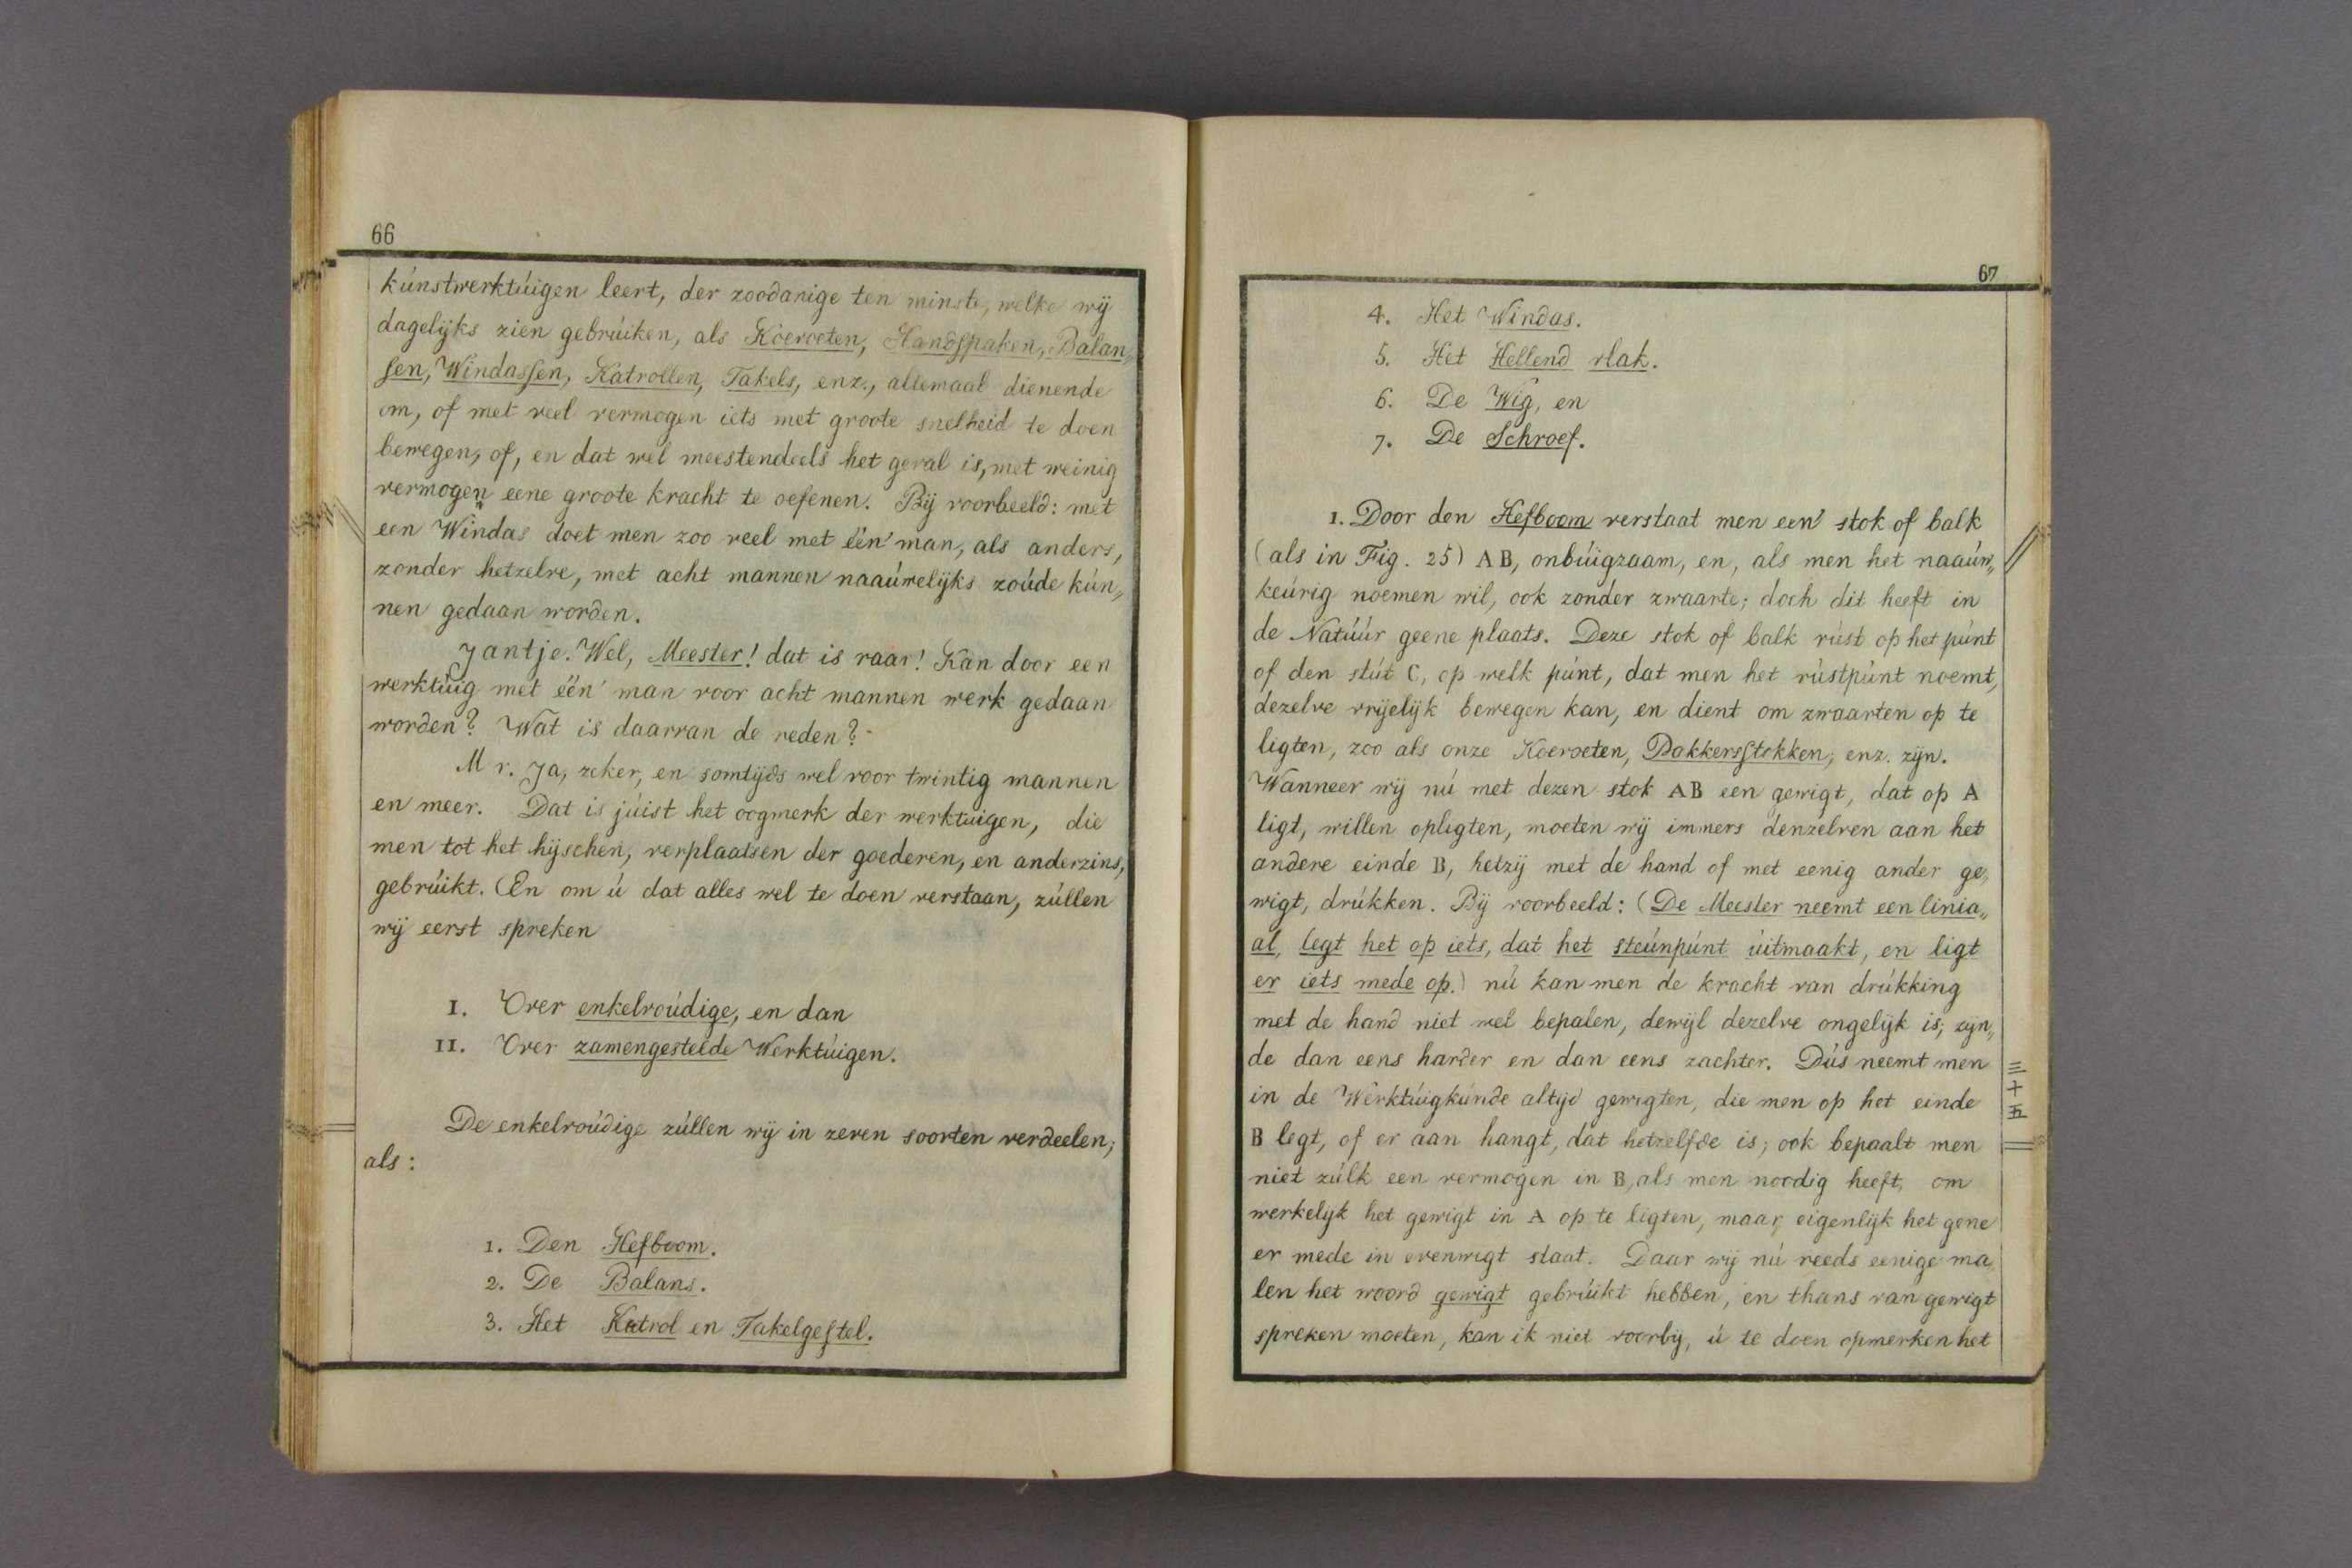 66
kúnstwerktúigen leert, der zoodanige ten minste, welke wij
dagelijks zien gebrúiken, als Koevoeten, Handspaken, Balan„
sen, Windassen, Katrollen, Takels, enz., allemaal dienende
om, of met veel vermogen iets met groote snelheid te doen
bewegen, of, en dat wel meestendeels het geval is, met weinig
vermogen eene groote kracht te oefenen. Bij voorbeeld: met
een Windas doet men zoo veel met één man, als anders,
zonder hetzelve, met acht mannen naaúwelijks zoúde kún„
nen gedaan worden.
Jantje. Wel, Meester! dat is raar! Kan door een
werktúig met één man voor acht mannen werk gedaan
worden? Wat is daarvan de reden?
Mr. Ja, zeker, en somtijds wel voor twintig mannen
en meer. Dat is júist het oogmerk der werktúigen, die
men tot het hijschen, verplaatsen der goederen, en anderzins,
gebrúikt. En om ú dat alles wel te doen verstaan, zúllen
wij eerst spreken
I. Over enkelvoúdige, en dan
II. Over zamengestelde Werktúigen.
De enkelvoúdige zúllen wij in zeven soorten verdeelen;
als:
1. Den Hefboom.
2. De Balans.
3. Het Katrol en Takelgestel.
67
4. Het Windas.
5. Het Hellend vlak.
6. De Wig, en
7. De Schroef.
1. Door den Hefboom verstaat men een' stok of balk
(als in Fig. 25) AB, onbúigzaam, en, als men het naaúw„
keúrig noemen wil, ook zonder zwaarte; doch dit heeft in
de Natúúr geene plaats. Deze stok of balk rúst op het púnt
of den stút C, op welk púnt, dat men het rústpúnt noemt,
dezelve vrijelijk bewegen kan, en dient om zwaarten op te
ligten, zoo als onze Koevoeten, Dakkersstokken, enz. zijn.
Wanneer wij nú met dezen stok AB een gewigt, dat op A
ligt, willen opligten, moeten wij immers denzelven aan het
andere einde B, hetzij met de hand of met eenig ander ge„
wigt, drúkken. Bij voorbeeld: (De Meester neemt een linia„
al, legt het op iets, dat het steúnpúnt úitmaakt, en ligt
er iets mede op.) nú kan men de kracht van drúkking
met de hand niet wel bepalen, dewijl dezelve ongelijk is; zijn„
de dan eens harder en dan eens zachter. Dús neemt men
in de Werktúigkúnde altijd gewigten, die men op het einde
B legt, of er aan hangt, dat hetzelfde is; ook bepaalt men
niet zúlk een vermogen in B, als men noodig heeft, om
werkelijk het gewigt in A op te ligten, maar eigenlijk het gene
er mede in evenwigt staat. Daar wij nú reeds eenige ma„
len het woord gewigt gebrúikt hebben, en thans van gewigt
spreken moeten, kan ik niet voorbij, ú te doen opmerken het
三十五